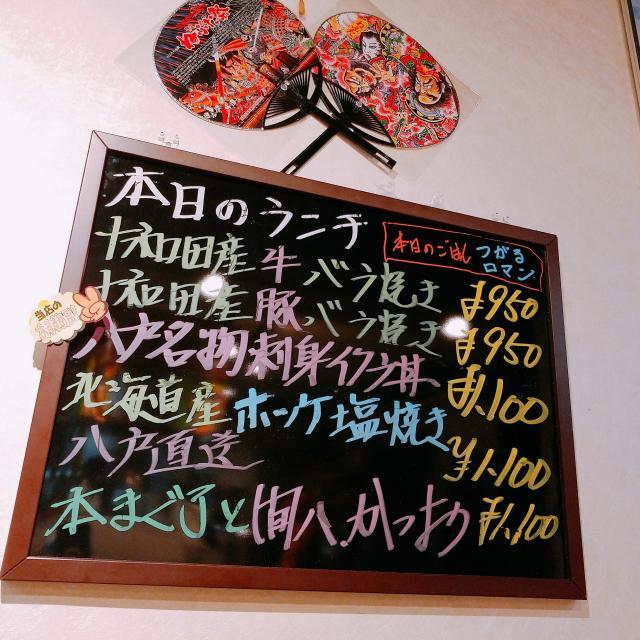 本日のランチ
本日のごはん つがる
ロマン
十和田産牛バラ焼き ¥950
十和田産豚バラ焼き ¥950
当店の
八戸名物刺身イクラ丼 ¥1,100
北海道産ホッケ塩焼き ¥1,100
八戸直送
本まぐろと間八.かつおの ¥1,100